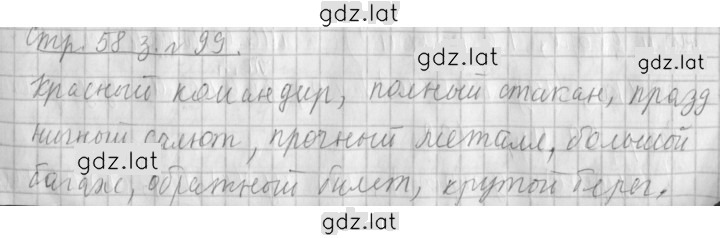 gdz.lat
Стр. 58 з. № 99.
gdz.lat
Красный командир, полный стакан, празд
ничный салют, прочный металл, большой
gdz.lat
багаж, обратный билет, крутой берег.
gdz.lat